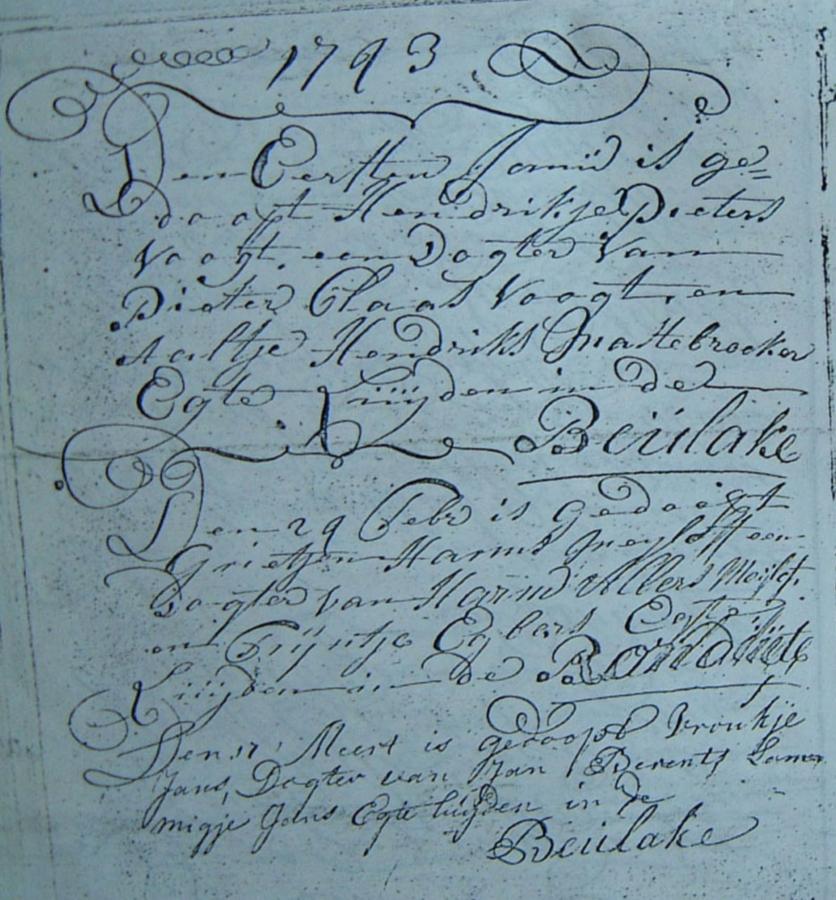 1793
Den Eersten Januii is ge=
doopt Hendrikje Pieters
Voogt, een Dogter van
Pieter Claas Voogt, en
Aaltje Hendriks Mastebroeker
Egte Luijden in de
Beulake
Den 24 Febr is gedoopt
Grietjen Harms Meyloff een
Dogter van Harm Albers
en Trijntje Egberts Egte
Luijden in de Ronduite
Den 17 Meert is gedoopt Vroukje
Jans, Dogter van Jan Berents
migje Jans Egte luijden in de
Beulake